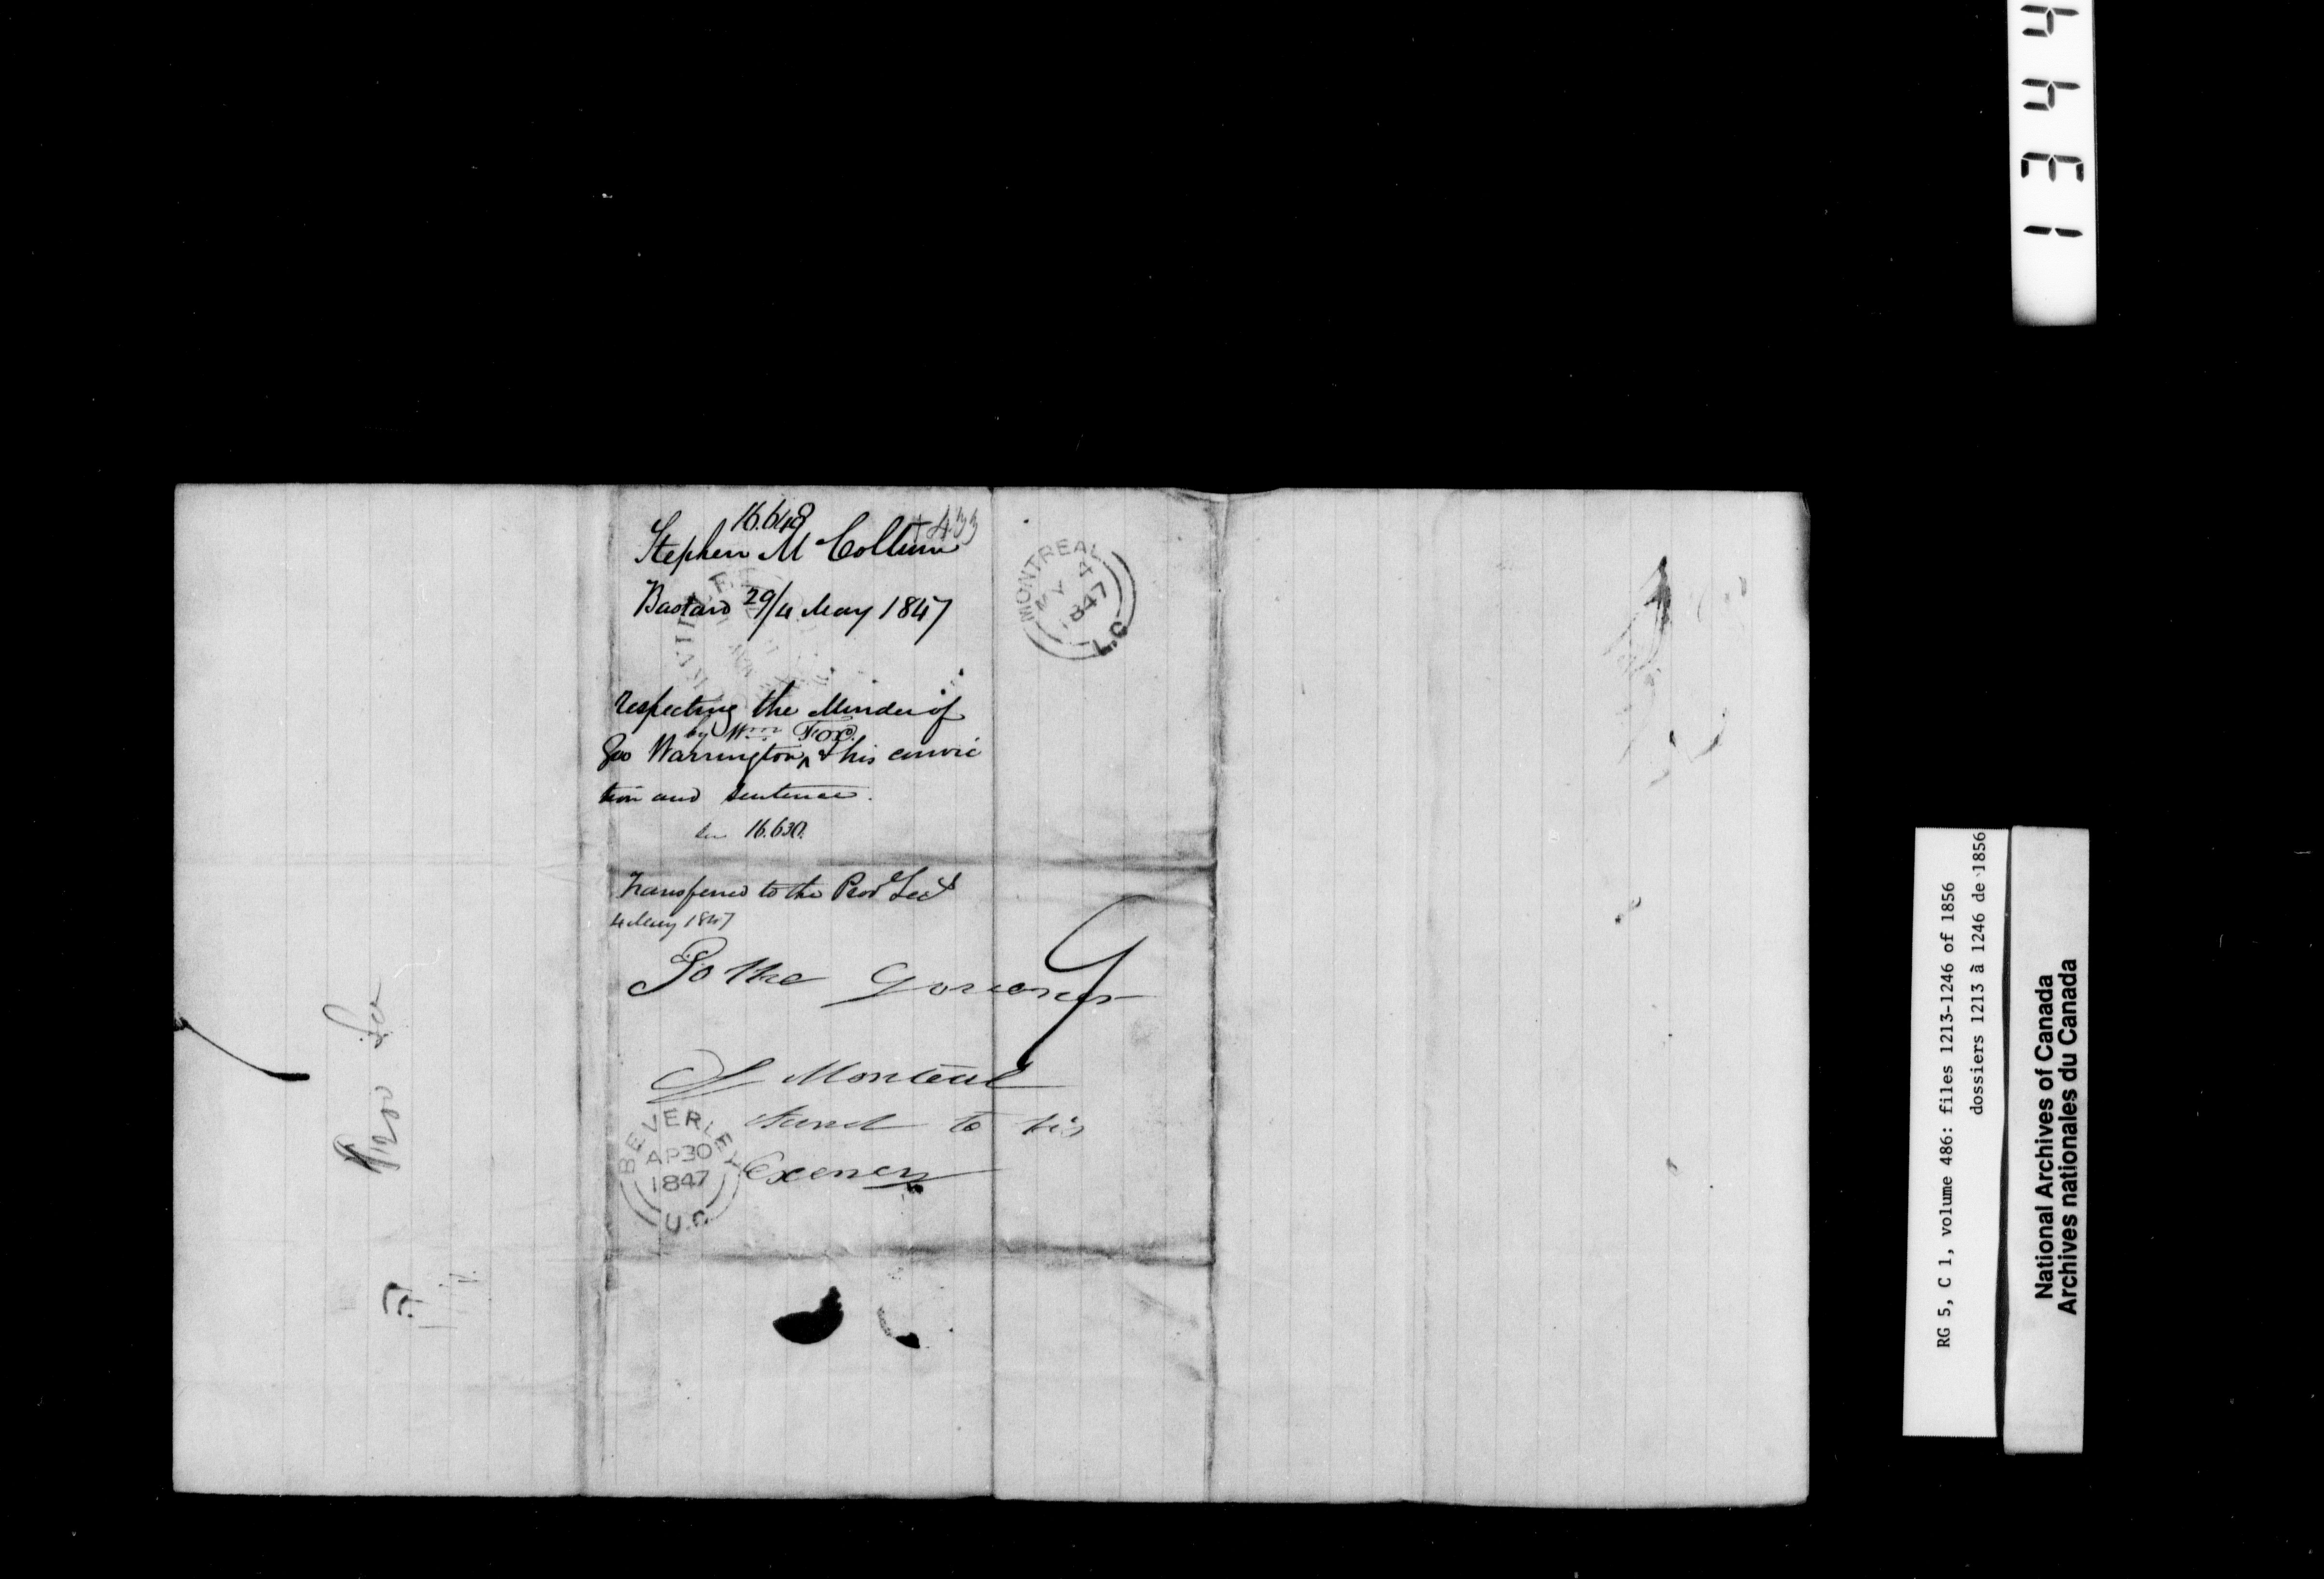 16.648
+433
Stephen McCollum
Bastard 29/4 May 1847
respecting the Murder of
by Wm Fox
Geo Warrington ^ & his convic
tion and sentence.
see 16.630.
Transferred to the Prov Sect
4 May 1847
To the Governer
of Montreal
hand to his
Exency
9
MONTREAL
MY 4
1847
L.C
BEVERLEY
AP 30
1847
U.C
Pro Sec
1344
RG 5, C 1, volume 486: files 1213-1246 of 1856
dossiers 1213 à 1246 de 1856
National Archives of Canada
Archives nationales du Canada